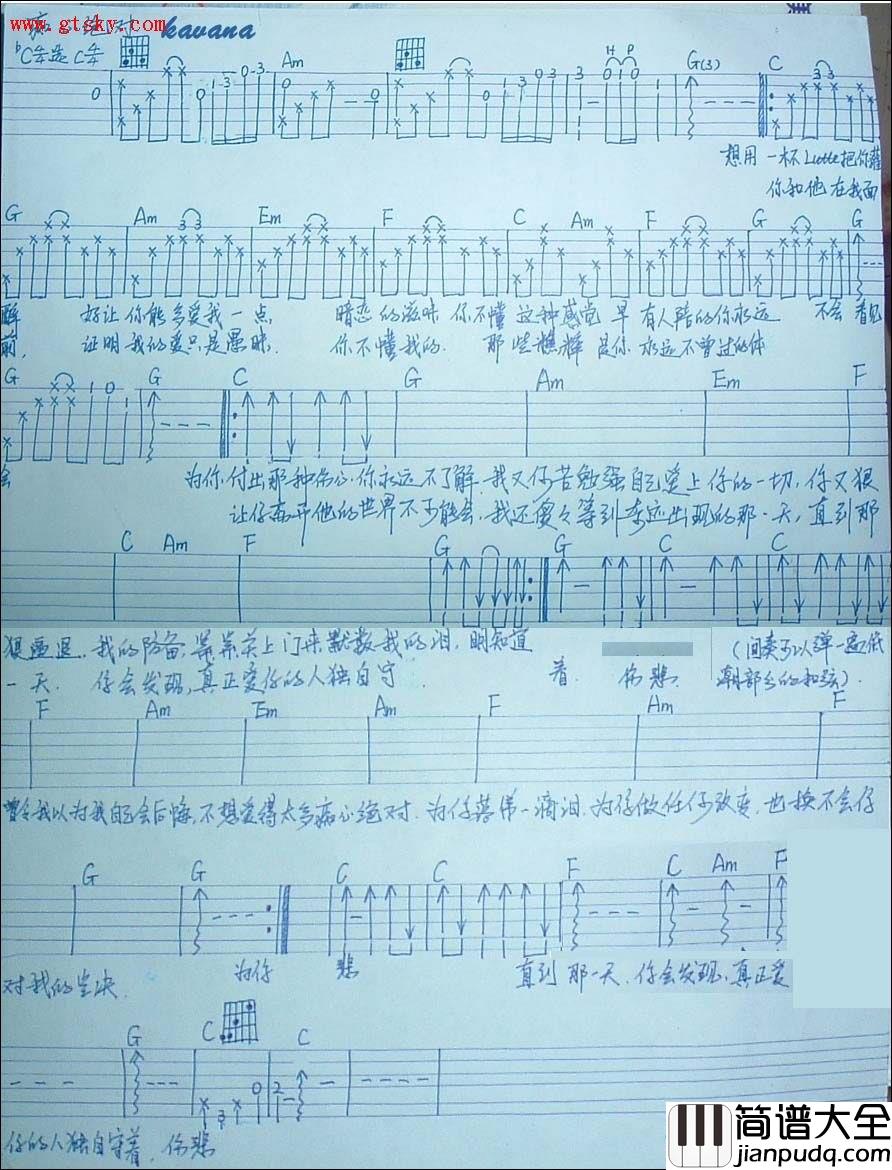 www.gtsky.com
kavana
Am G(3) C
H P
想用一杯Latte把你灌
你和他在我面
G Am Em F C Am F G G
醉 好让你能多爱我一点 暗恋的滋味 你不懂 这种感觉 早有人陪的你永远 不会 看见
前, 证明我的爱只是愚昧. 你不懂我的. 那些憔悴 是你 永远不曾过的体
G G C G Am Em F
会 为你,付出那种伤心,你永远不了解.我又何苦勉强自己爱上你的一切,你又狠
让你离开他的世界不可能会.我还傻々等到奇迹出现的那一天,直到那
C Am F G G C C
狠逼退.我的防备,静静关上门来默数我的泪.明知道
一天. 你会发现,真正爱你的人独自守 着. 伤悲. (间奏可以弹一遍低
潮部分的和弦).
F Am Em Am F Am F
曾今我以为我自己会后悔,不想爱得太多痴心绝对.为你落第一滴泪.为你做任何改变.也换不会你
G G C C F C Am F
对我的坚决. 为你 悲 直到 那一天.你会发现,真正爱
G C C
你的人独自守着. 伤悲
简谱大全
jianpudq.com